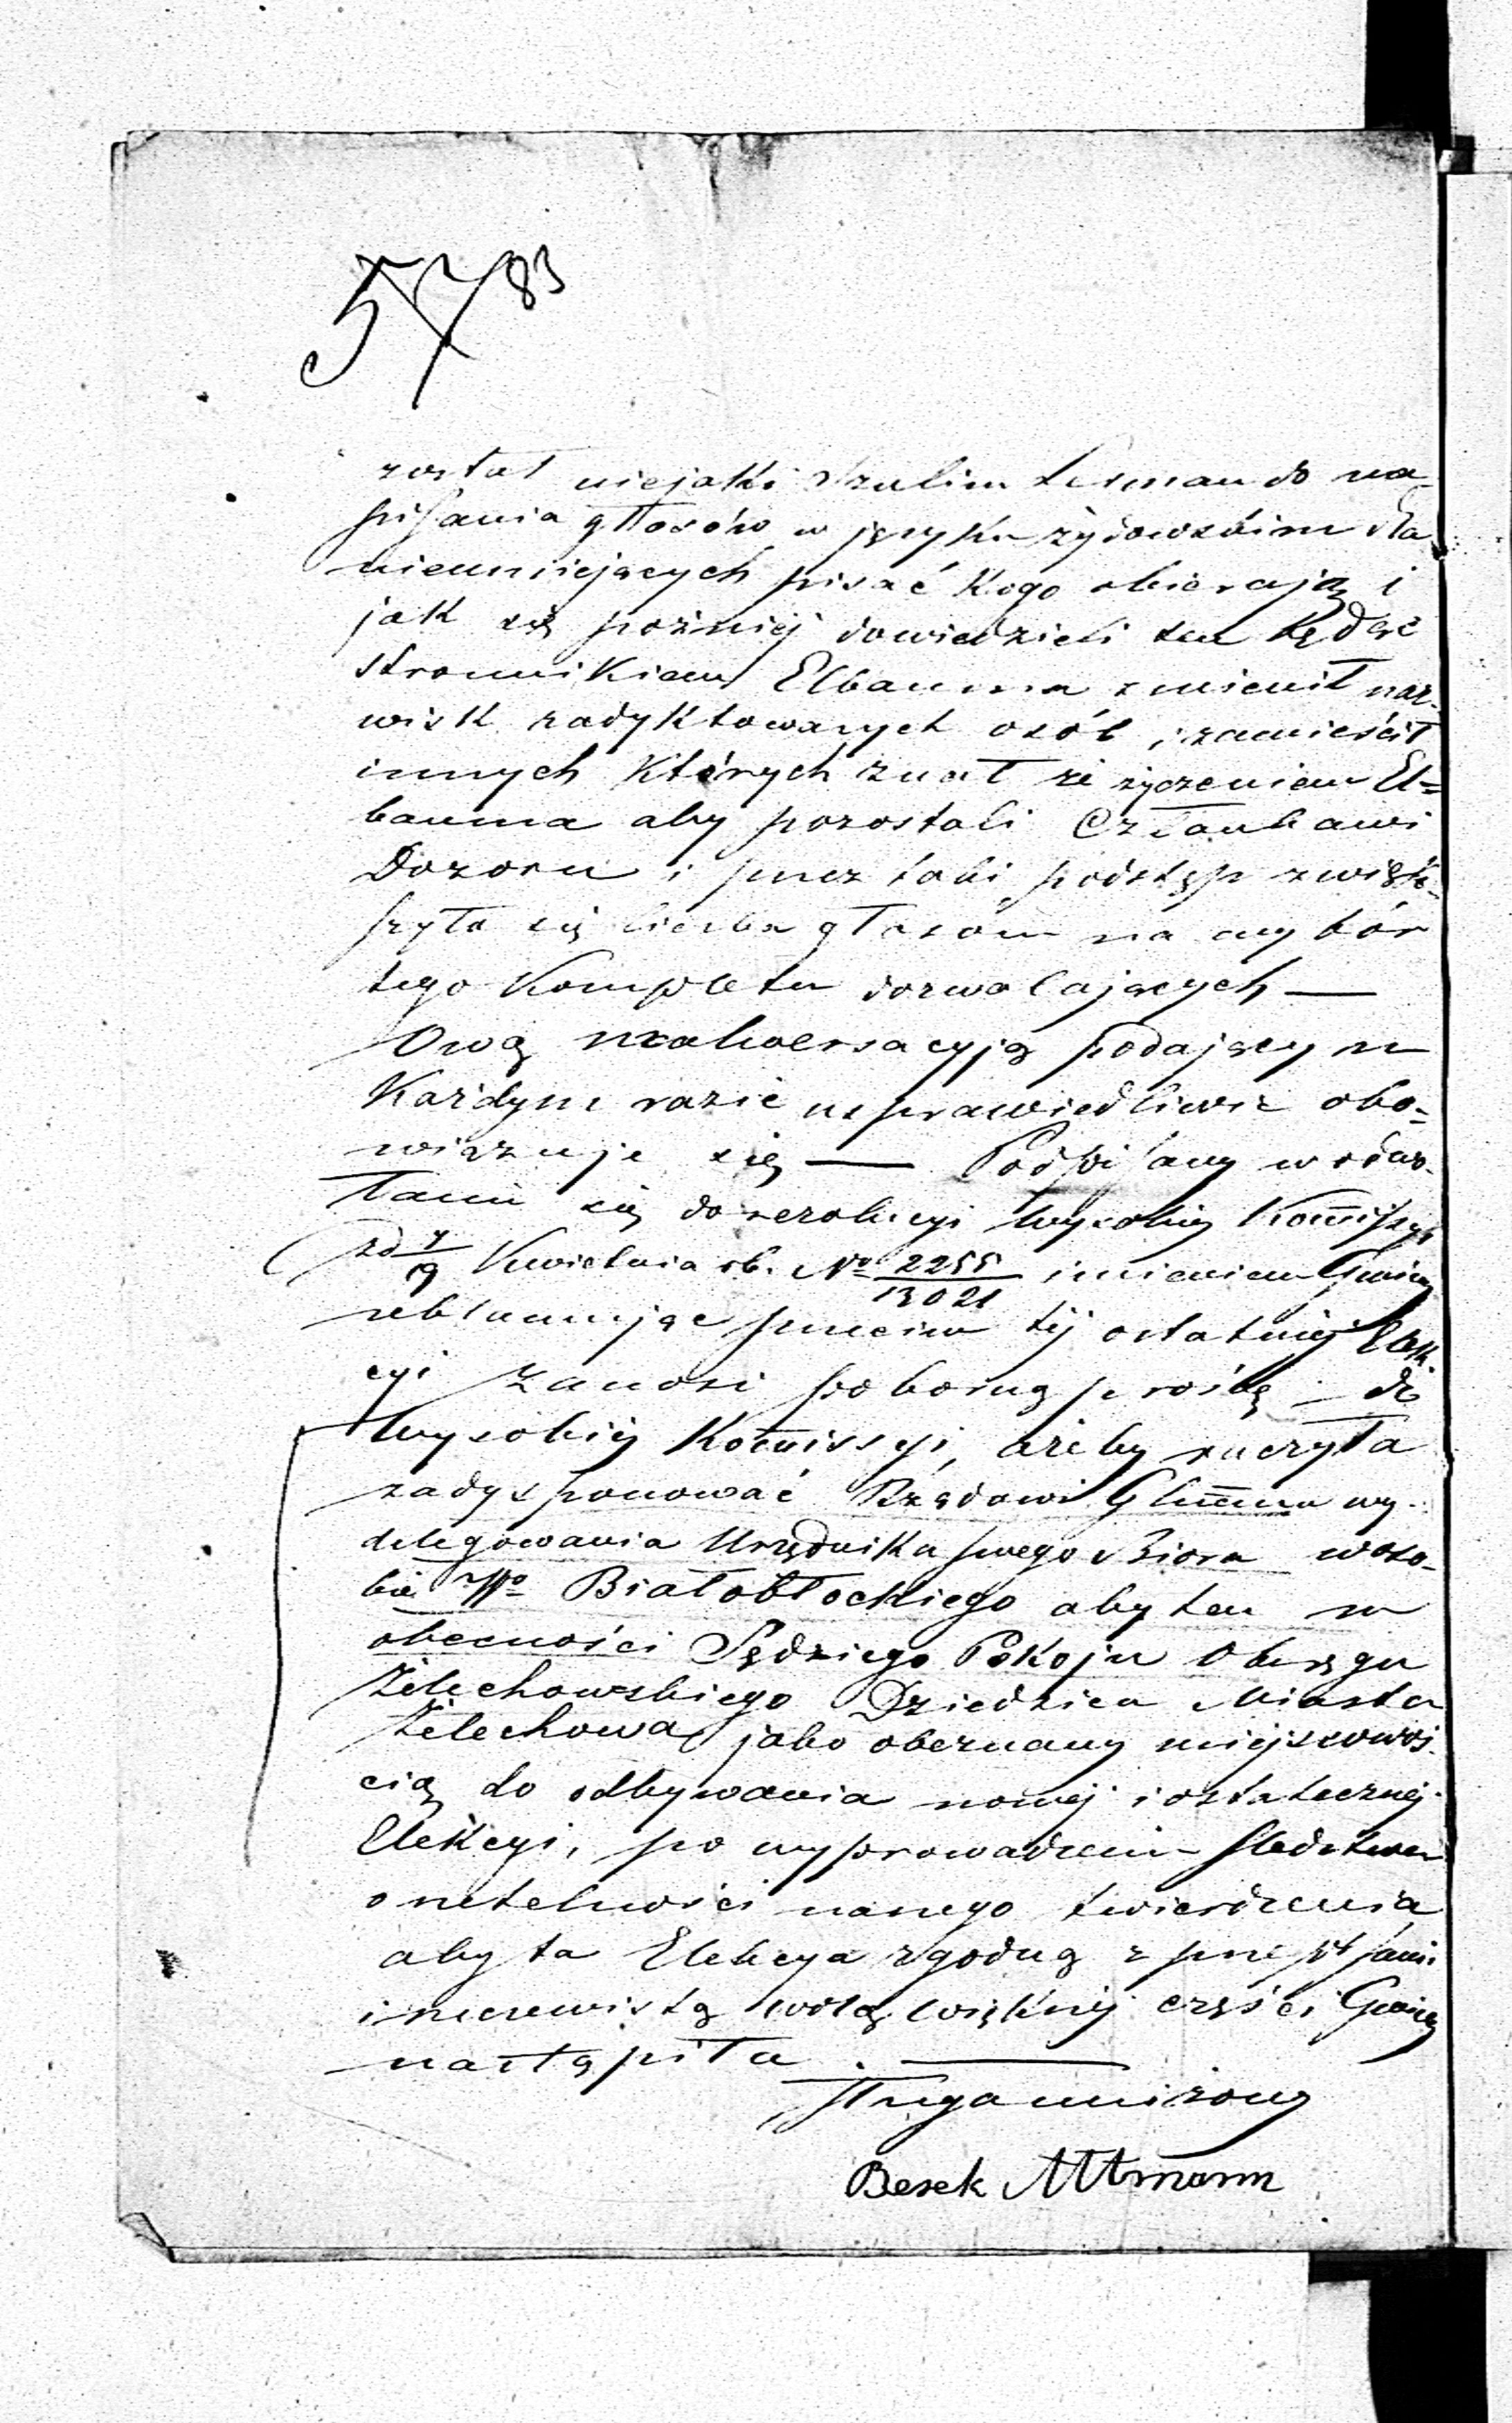 57 83
został niejaki Szulim Lerman do na-
pisania głosów w języku żydowskim dla
nieumiejących pisać kogo obierają i
jak się poźniej dowiedzieli ten będąc
stronnikiem Elbauma zmienił naz-
wisk zadyktowanych osób i zamieścił
innych których znał że życzeniem El=
bauma aby pozostali Członkami
Dozoru i przez taki podstęp zwięk-
szyła się liczba głosów na wybór
tego Kompletu dozwalających —
Ową malwersacyją podający w
Każdym razie usprawiedliwić obo=
wiązuje się — Podpisany w odwo-
łaniu się do rezolucyi Wysokiej Kommissyi
zd 7/19 Kwietnia rb. No 2255/13021 imieniem Gminy
reklamując przeciw téj ostatniej Elek-
cyi zanosi pokorną prośbę do
Wysokiéj Kommissyi, ażeby raczyła
zadysponować Rządowi Gubernu wy-
delegowania Urzędnika swego Biora w oso-
bie Wo Białobłockiego aby ten w
obecności Sędziego Pokoju Okręgu
Żelechowskiego Dziedzica Miasta
Żelechowa jako obeznany miejscowoś-
cią do odbywania nowéj i ostatecznéj
Elekcyi, po wyprowadzeniu śledztwa
o rzetelności naszego twierdzenia
aby ta Elekcya zgodną z przepisami
i rzeczywistą wolą większéj części Gminy
nastąpiła. —
Sługa uniżony
Berek Altmann